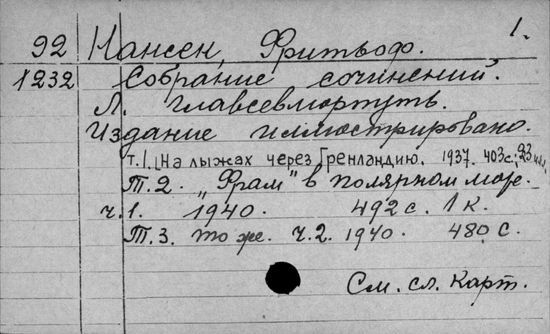 1.
92 Нансен, Фритьоф.
1232 Собрание сочинений.
Л. Главсевморпуть.
Издание иллюстрировано.
т.1. На лыжах через Гренландию. 1937. 403 с.; 23
Т.2. „Фрам" в полярном море.
ч.1. 1940. 492 с. 1 к.
Т.3. то же. ч.2. 1940. 480 с.
См. сл. карт.